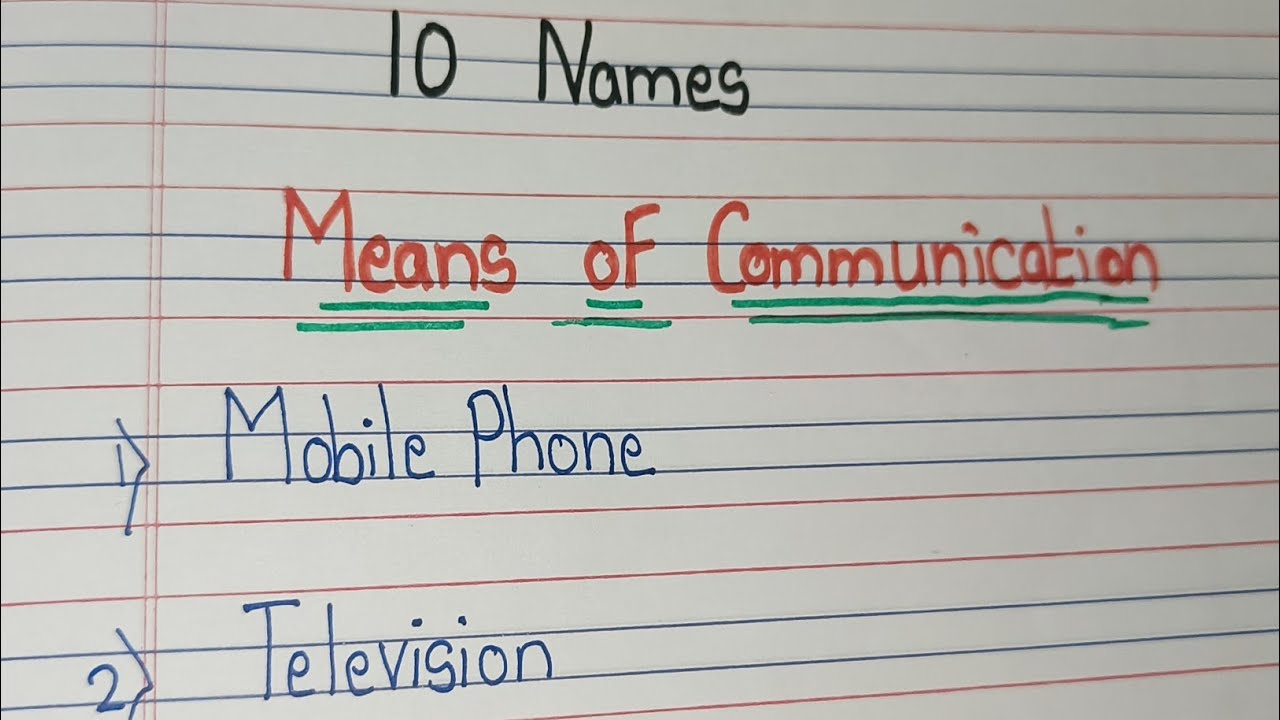 10 Names
Means of Communication
1) Mobile Phone
2) Television